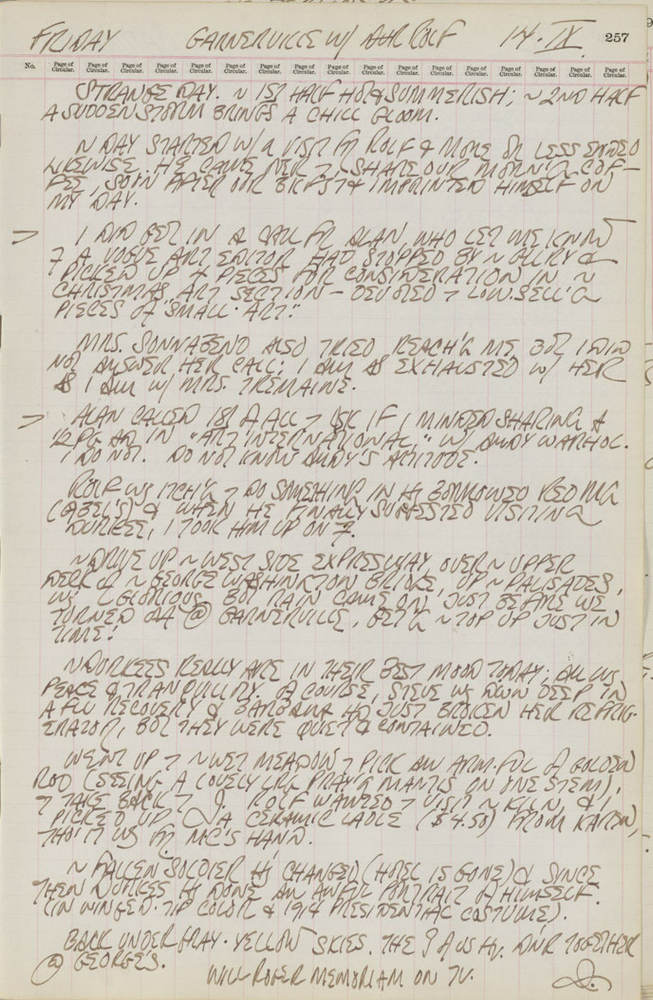 FRIDAY GARNERVILLE W/ ROLF 14·IX 257
No. Page of Circular. Page of Circular. Page of Circular. Page of Circular. Page of Circular. Page of Circular. Page of Circular. Page of Circular. Page of Circular. Page of Circular. Page of Circular. Page of Circular. Page of Circular. Page of Circular. Page of Circular. Page of Circular.
STRANGE DAY. ~ 1ST HALF HOT & SUMMERISH; ~ 2ND HALF
A SUDDEN STORM BRINGS A CHILL GLOOM.
~ DAY STARTED W/ A VISIT FR ROLF & MORE OR LESS ENDED
LIKEWISE. HE CAME OVER SHARE OUR MORN'G COF-
FEE, SOON AFTER OUR BRKFST & IMPRINTED HIMSELF ON
MY DAY.
I DID GET IN A CALL FR ALAN, WHO LET ME KNOW
A VOGUE ART EDITOR HAD STOPPED BY ~ GALLRY &
PICKED UP 4 PIECES FOR CONSIDERATION IN ~
CHRISTMAS ART SECTION — DEVOTED LOW·SELL'G
PIECES OF "SMALL·ART."
MRS. SONNABEND ALSO TRIED REACH'G ME, BUT I DID
NOT ANSWER HER CALL; I AM AS EXHAUSTED W/ HER
AS I AM W/ MRS. TREMAINE.
ALAN CALLED 1ST OF ALL ASK IF I MINDED SHARING A
1/2 PG AD IN "ART INTERNATIONAL" W/ ANDY WARHOL.
I DO NOT. DO NOT KNOW ANDY'S ATTITUDE.
ROLF WS ITCH'G DO SOMETHING IN HS BORROWED RED MG
(ABEL'S) & WHEN HE FINALLY SUGGESTED VISITING
DURKEES, I TOOK HIM UP ON
~ DRIVE UP ~ WEST SIDE EXPRESSWAY, OVER ~ UPPER
DECK OF ~ GEORGE WASHINGTON BRIDGE, UP ~ PALISADES,
WS GLORIOUS, BUT RAIN CAME ON JUST BEFORE WE
TURNED OFF @ GARNERVILLE, GET'G ~ TOP UP JUST IN
TIME!
~ DURKEES REALLY ARE IN THEIR BEST MOOD TODAY; ALL WS
PEACE & TRANQUILITY. OF COURSE, STEVE WS DOWN DEEP IN
A FLU RECOVERY & BARBARA HD JUST BROKEN HER REFRIG-
ERATOR, BUT THEY WERE QUIET & CONTAINED.
WENT UP ~ WET MEADOW PICK AN ARM·FUL OF GOLDEN
ROD (SEEING A LOVELY LRG PRAY'G MANTIS ON ONE STEM),
TAKE BACK J. ROLF WANTED VISIT ~ KILN, & I
PICKED UP A CERAMIC LADLE ($4.50) FROM KAREN,
THO IT WS FR MC'S HAND.
~ FALLEN SOLDIER HS CHANGED (HOTEL IS GONE) & SINCE
THEN DURKEE HS DONE AN AWFUL PORTRAIT OF HIMSELF.
(IN WINGED·TIP COLLAR & 1914 PRESIDENTIAL COSTUME).
BACK UNDER GRAY·YELLOW SKIES. THE 3 OF US HV DNR TOGETHER
@ GEORGE'S.
WILL ROGER MEMORIAM ON TV.